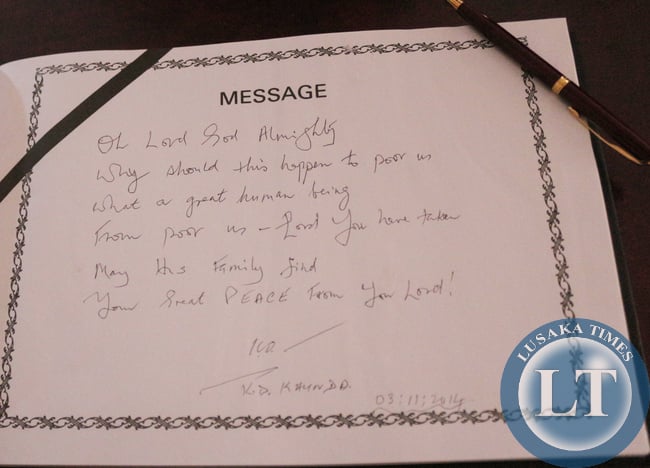 MESSAGE
Oh Lord God Almighty
Why should this happen to poor us
What a great human being
From poor us - Lord You have taken
May His Family find
Your Great PEACE From You Lord!
K.D. KAUNDA
03:11:2014
LUSAKA TIMES
LT